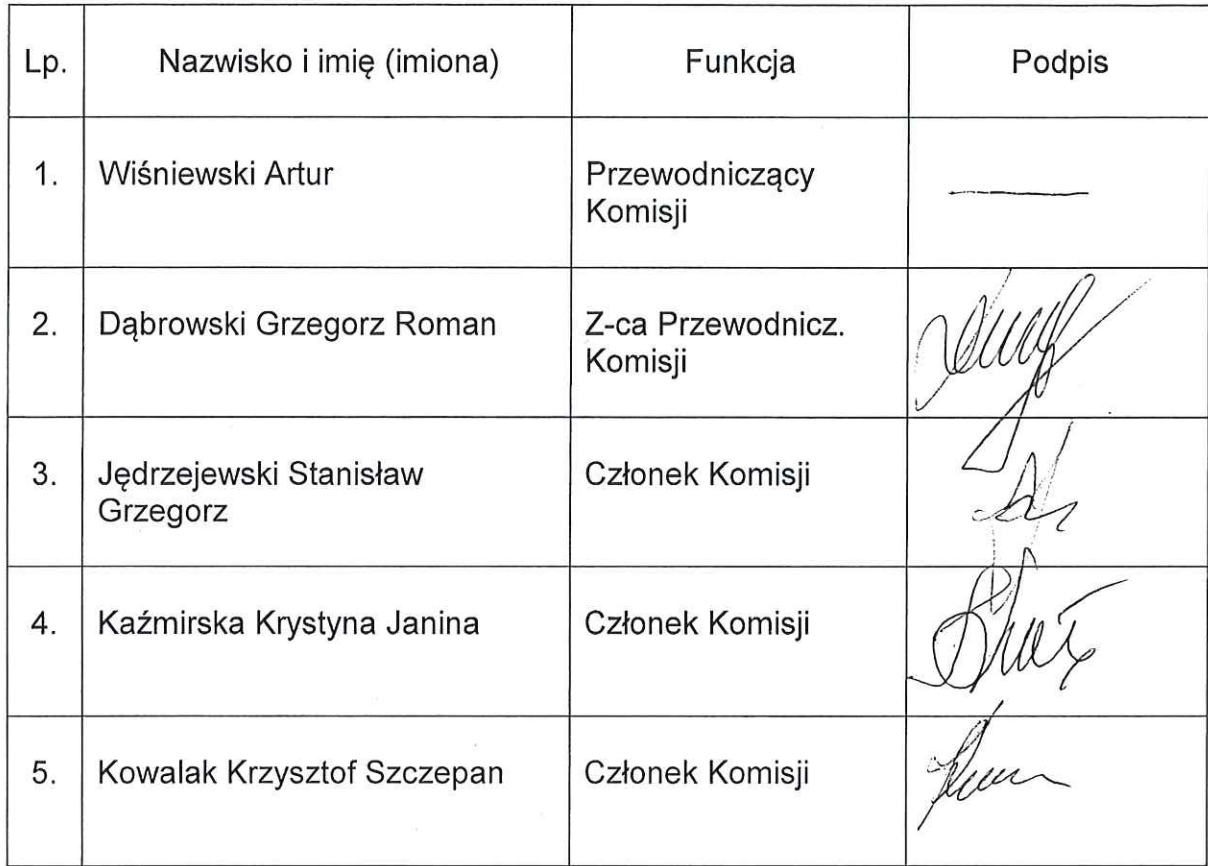 Lp. Nazwisko i imię (imiona) Funkcja Podpis
1. Wiśniewski Artur Przewodniczący
Komisji
2. Dąbrowski Grzegorz Roman Z-ca Przewodnicz.
Komisji
3. Jędrzejewski Stanisław Członek Komisji
Grzegorz
4. Kaźmirska Krystyna Janina Członek Komisji
5. Kowalak Krzysztof Szczepan Członek Komisji